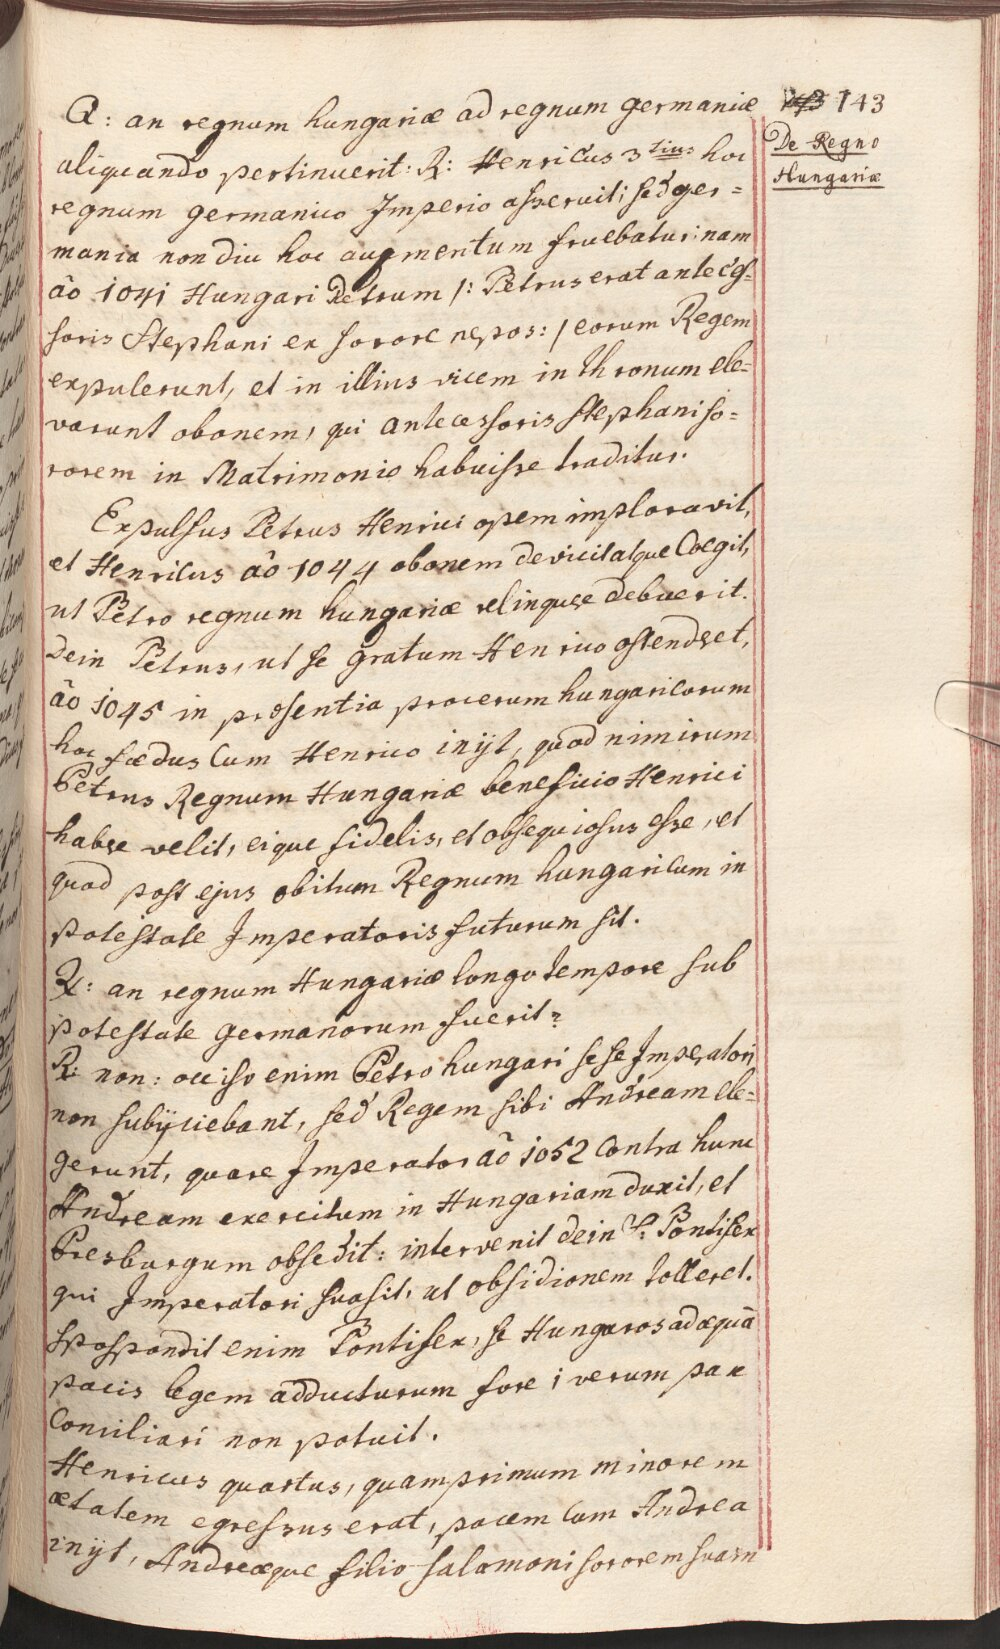 143 143
De Regno
Hungariæ
Q: an regnum hungariæ ad regnum germaniæ
aliquando pertinuerit: R: Henricus 3tius hoc
regnum germanico Imperio asseruit; sed ger=
mania non diu hoc augmentum fruebatur: nam
aõ 1041 Hungari Petrum /: Petrus erat anteces-
soris Stephani ex sorore nepos: / eorum Regem
expulerunt, et in illius vicem in thronum ele=
varunt obonem, qui antecessoris Stephani so=
rorem in Matrimonio habuisse traditur.
Expulsus Petrus Henrici opem imploravit,
et Henricus aõ 1044 obonem devicit atque Coegit,
ut Petro regnum hungariæ relinquere debuerit.
Dein Petrus, ut se gratum Henrico ostenderet,
aõ 1045 in presentia procerum hungaricorum
hoc fœdus Cum Henrico inijt, quod nimirum
Petrus Regnum Hungariæ beneficio Henrici
habere velit, eique fidelis, et obsequiosus esse, et
quod post ejus obitum Regnum hungaricum in
potestate Imperatoris futurum sit.
Q: an regnum Hungariæ longo tempore sub
potestate Germanorum fuerit?
R: non: occiso enim Petro hungari se se Imperatori
non subijciebant, sed Regem sibi Andream ele=
gerunt, quare Imperator aõ 1052 Contra hunc
Andream exercitum in Hungariam duxit, et
Presburgum obsedit: intervenit dein S: Pontifex
qui Imperatori suasit, ut obsidionem tolleret.
spospondit enim Pontifex, se Hungaros ad æquã
pacis legem adducturum fore; verum pax
Conciliari non potuit.
Henricus quartus, quam primum minorem
ætatem egressus erat, pacem Cum Andrea
inijt, Andreæque filio Salamoni sororem suam